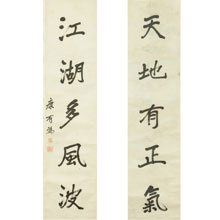 天地有正氣
江湖多風波
康有為